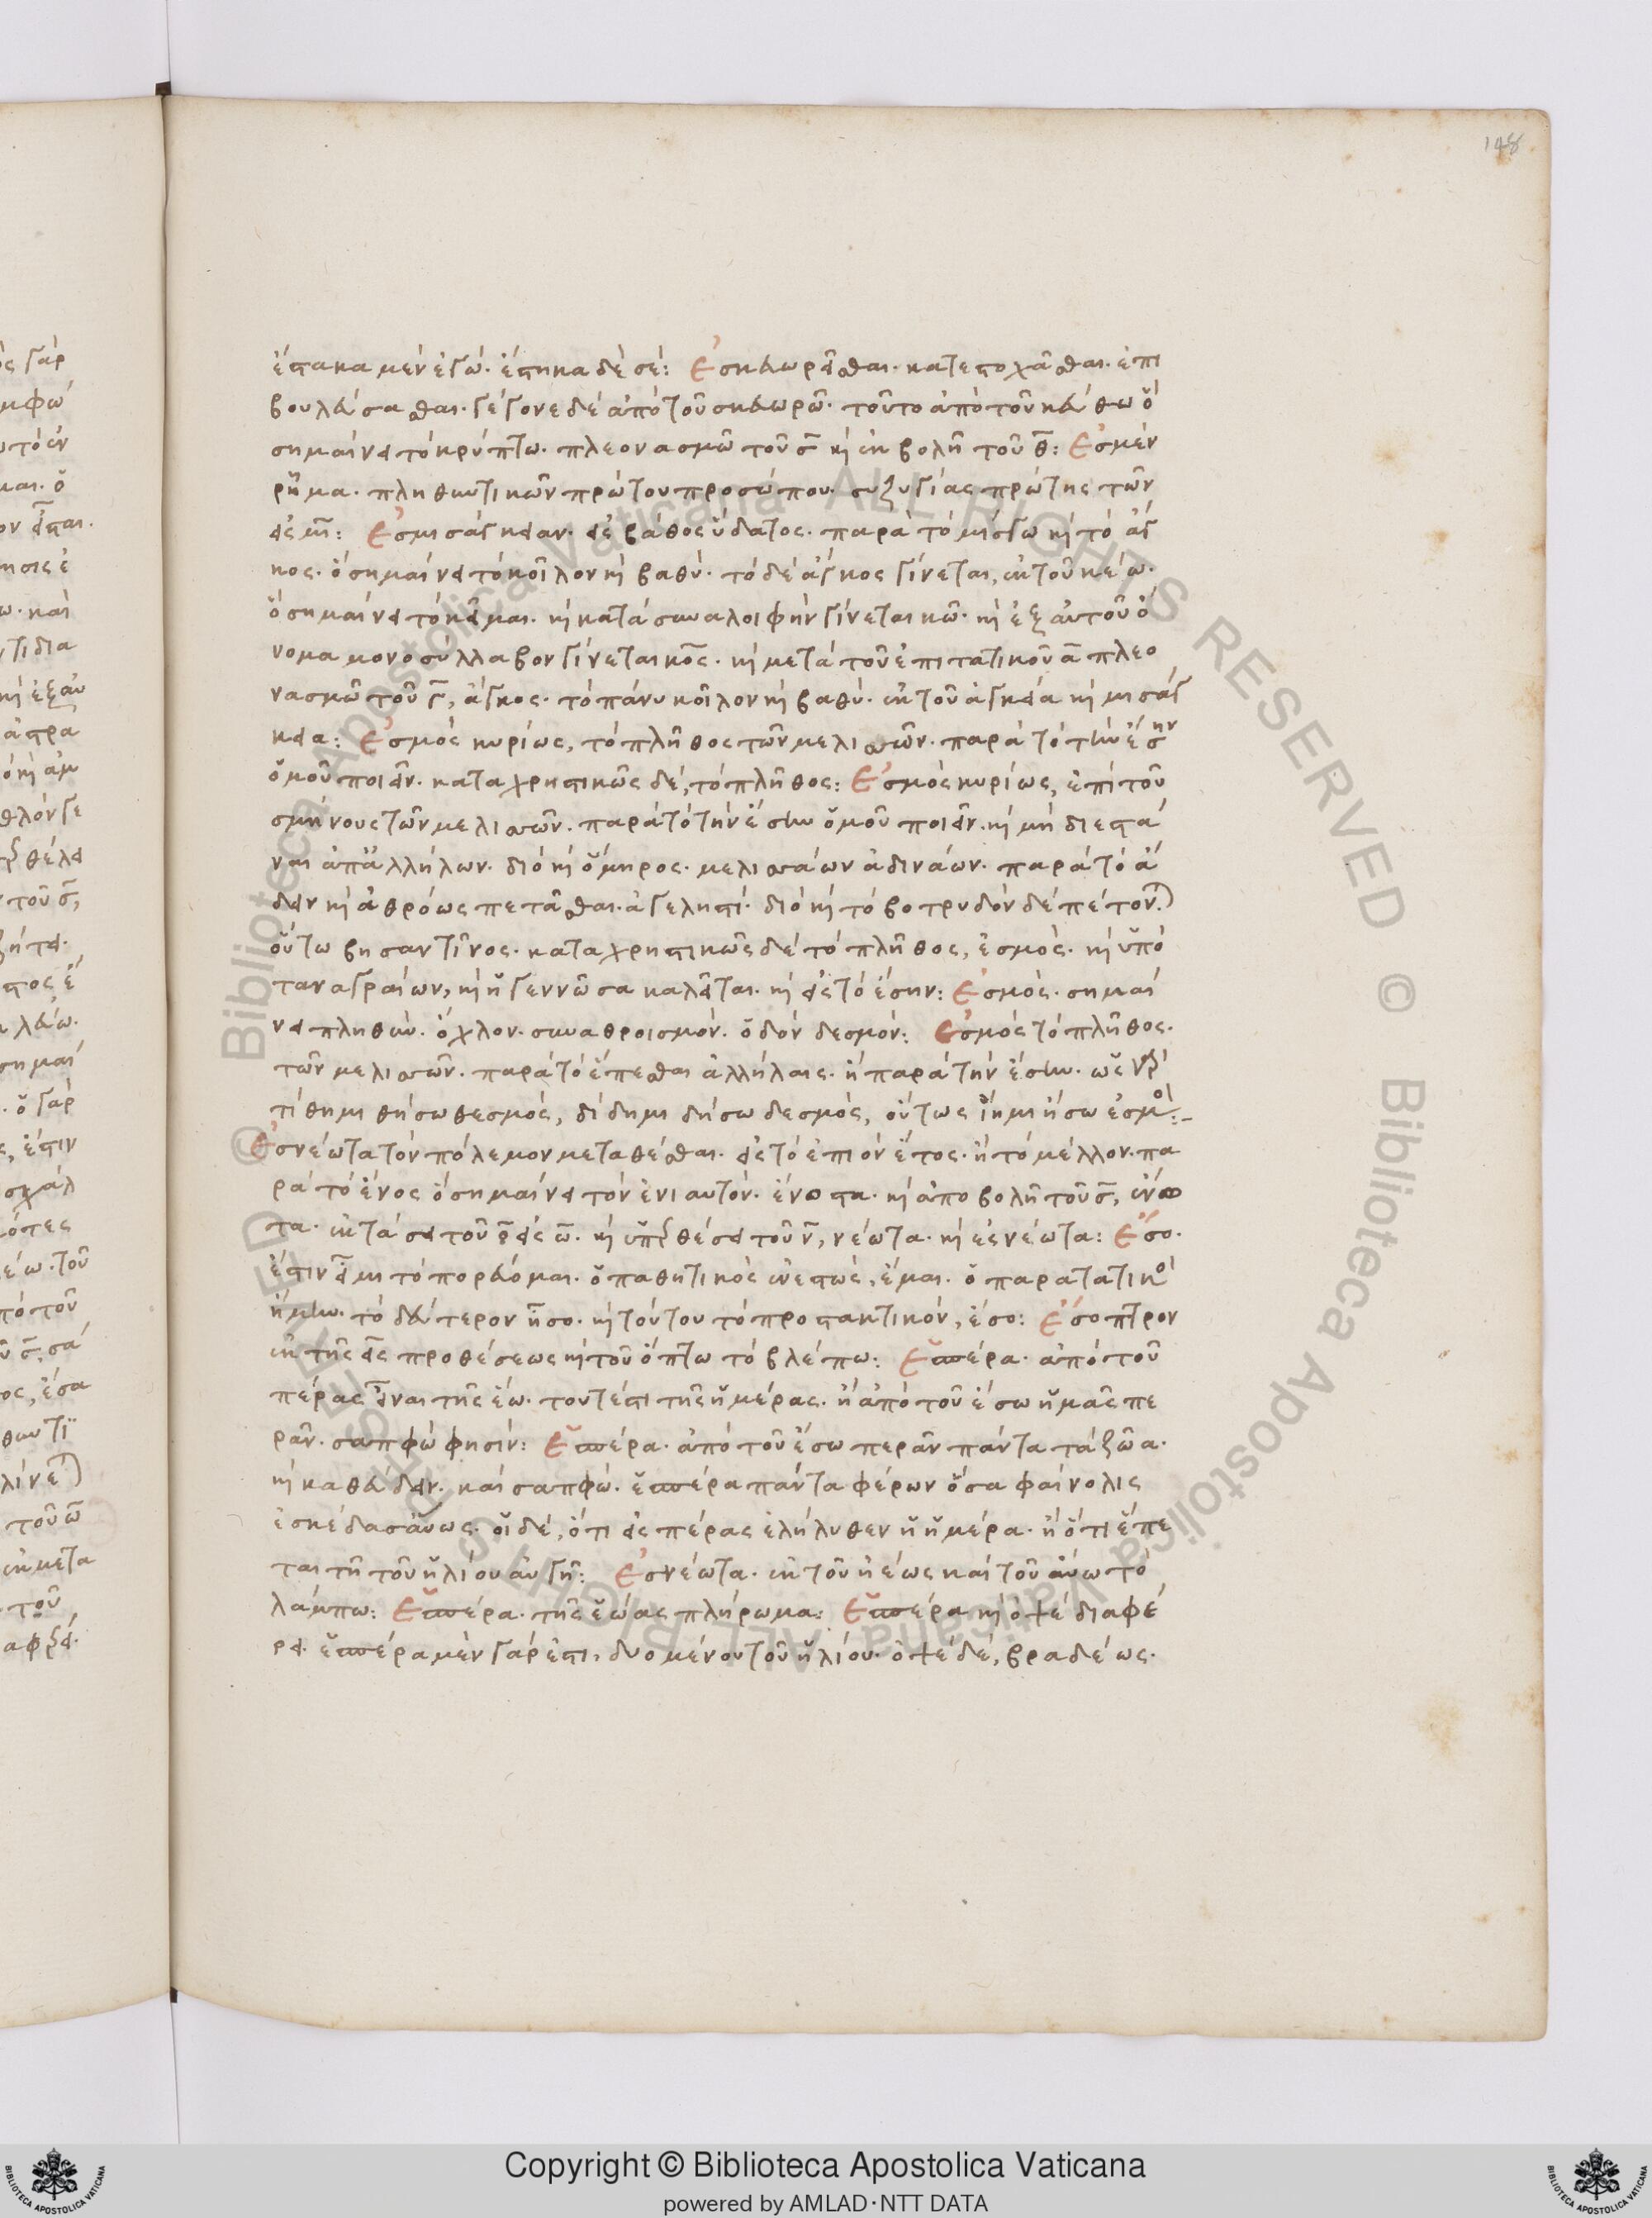 148
ἕστακα μὲν ἐγώ· ἕστηκα δὲ σέ: Ἐσκευωρεῖσθαι· κατεστοχᾶσθαι· ἐπι
βουλεύσασθαι· γέγονε δὲ ἀπὸ τοῦ σκευωρῶ· τοῦτο ἀπὸ τοῦ κεύθω ὃ
σημαίνει τὸ κρύπτω· πλεονασμῶ τοῦ σ κὶ ἐκβολῆ τοῦ θ: Ἐσμὲν
ῥῆμα· πληθυντικῶν πρώτου προσώπου· συζυγίας πρώτης τῶν
εἰς μι: Ἐσμισάγκειαν· εἰς βάθος ὕδατος· παρὰ τὸ μίσγω κὶ τὸ ἄγ
κος· ὃ σημαίνει τὸ κοῖλον κὶ βαθύ· τὸ δὲ ἄγκος γίνεται, ἐκ τοῦ κέω·
ὃ σημαίνει τὸ κεῖμαι· κὶ κατὰ συναλοιφὴν γίνεται κῶ· κὶ ἐξ αὐτοῦ ὄ
νομα μονοσύλλαβον γίνεται κός· κὶ μετὰ τοῦ ἐπιτατικοῦ α πλεο
νασμῶ τοῦ γ, ἄγκος· τὸ πάνυ κοῖλον κὶ βαθύ· ἐκ τοῦ ἀγκεία κὶ μισάγ
κεια: Ἐσμὸς κυρίως, τὸ πλῆθος τῶν μελισσῶν· παρὰ τὸ τὴν ἕσην
ὁμοῦ ποιεῖν· καταχρηστικῶς δέ, τὸ πλῆθος: Ἐσμὸς κυρίως, ἐπὶ τοῦ
σμήνους τῶν μελισσῶν· παρὰ τὸ τὴν ἕσιν ὁμοῦ ποιεῖν· κὶ μὴ διεστά
ναι ἀπ' ἀλλήλων· διὸ κὶ ὅμηρος· μελισσάων ἀδινάων· παρὰ τὸ ἅ
δειν κὶ ἀθρόως πετᾶσθαι· ἀγεληστί· διὸ κὶ τὸ βοτρυδὸν δὲ πέτονται
οὕτω βησαντῖνος· καταχρηστικῶς δὲ τὸ πλῆθος, ἐσμός· κὶ ὑπὸ
ταναγραίων, κὶ ἡ γεννῶσα καλεῖται· κὶ εἰς τὸ ἕσην: Ἐσμός· σημαί
νει πληθύν· ὄχλον· συναθροισμόν· ὁδὸν δεσμόν: Ἐσμός τὸ πλῆθος·
τῶν μελισσῶν· παρὰ τὸ ἕπεσθαι ἀλλήλαις· ἢ παρὰ τὴν ἕσιν· ὡς
τίθημι θήσω θεσμός, δίδημι δήσω δεσμός, οὕτως ἵημι ἥσω ἐσμός:-
Ἐσνέωτα τὸν πόλεμον μεταθέσθαι· εἰς τὸ ἐπιὸν ἔτος· ἢ τὸ μέλλον· πα
ρὰ τὸ ἕνος ὃ σημαίνει τὸν ἐνιαυτόν· ἕνοστα· κὶ ἀποβολῆ τοῦ σ, ἕνο
τα· ἐκτάσει τοῦ ο εἰς ω· κὶ ὑπερθέσει τοῦ ν, νέωτα· κὶ ἐςνέωτα: Ἕσο·
ἔστιν εἶμι τὸ πορεύομαι· ὁ παθητικὸς ἐνεστώς, ἕμαι· ὁ παρατατικὸς
ἥμην· τὸ δεύτερον ἧσο· κὶ τούτου τὸ προστακτικόν, ἕσο: Ἔσοπτρον
ἐκ τῆς εἰς προθέσεως κὶ τοῦ ὄπτω τὸ βλέπω: Ἑσπέρα· ἀπὸ τοῦ
πέρας εἶναι τῆς ἕω· τουτέστι τῆς ἡμέρας· ἢ ἀπὸ τοῦ ἔσω ἡμᾶς πε
ρᾶν· σαπφώ φησίν: Ἑσπέρα· ἀπὸ τοῦ ἔσω περᾶν πάντα τὰ ζῶα·
κὶ καθεύδειν· καὶ σαπφώ· ἑσπέρα πάντα φέρων ὅσα φαίνολις
ἐσκέδασ' αὔως· οἱ δέ, ὅτι εἰς πέρας ἐλήλυθεν ἡ ἡμέρα· ἢ ὅτι ἕπε
ται τῆ τοῦ ἡλίου αὐγῆ: Ἐσνέωτα· ἐκ τοῦ ἠέως καὶ τοῦ αὔω τὸ
λάμπω: Ἑσπέρα· τῆς ἑώας πλήρωμα: Ἑσπέρα κὶ ὀψὲ διαφέ
ρει· ἑσπέρα μὲν γάρ ἐστι, δυομένου τοῦ ἡλίου· ὀψὲ δέ, βραδέως·
Copyright © Biblioteca Apostolica Vaticana
powered by AMLAD·NTT DATA